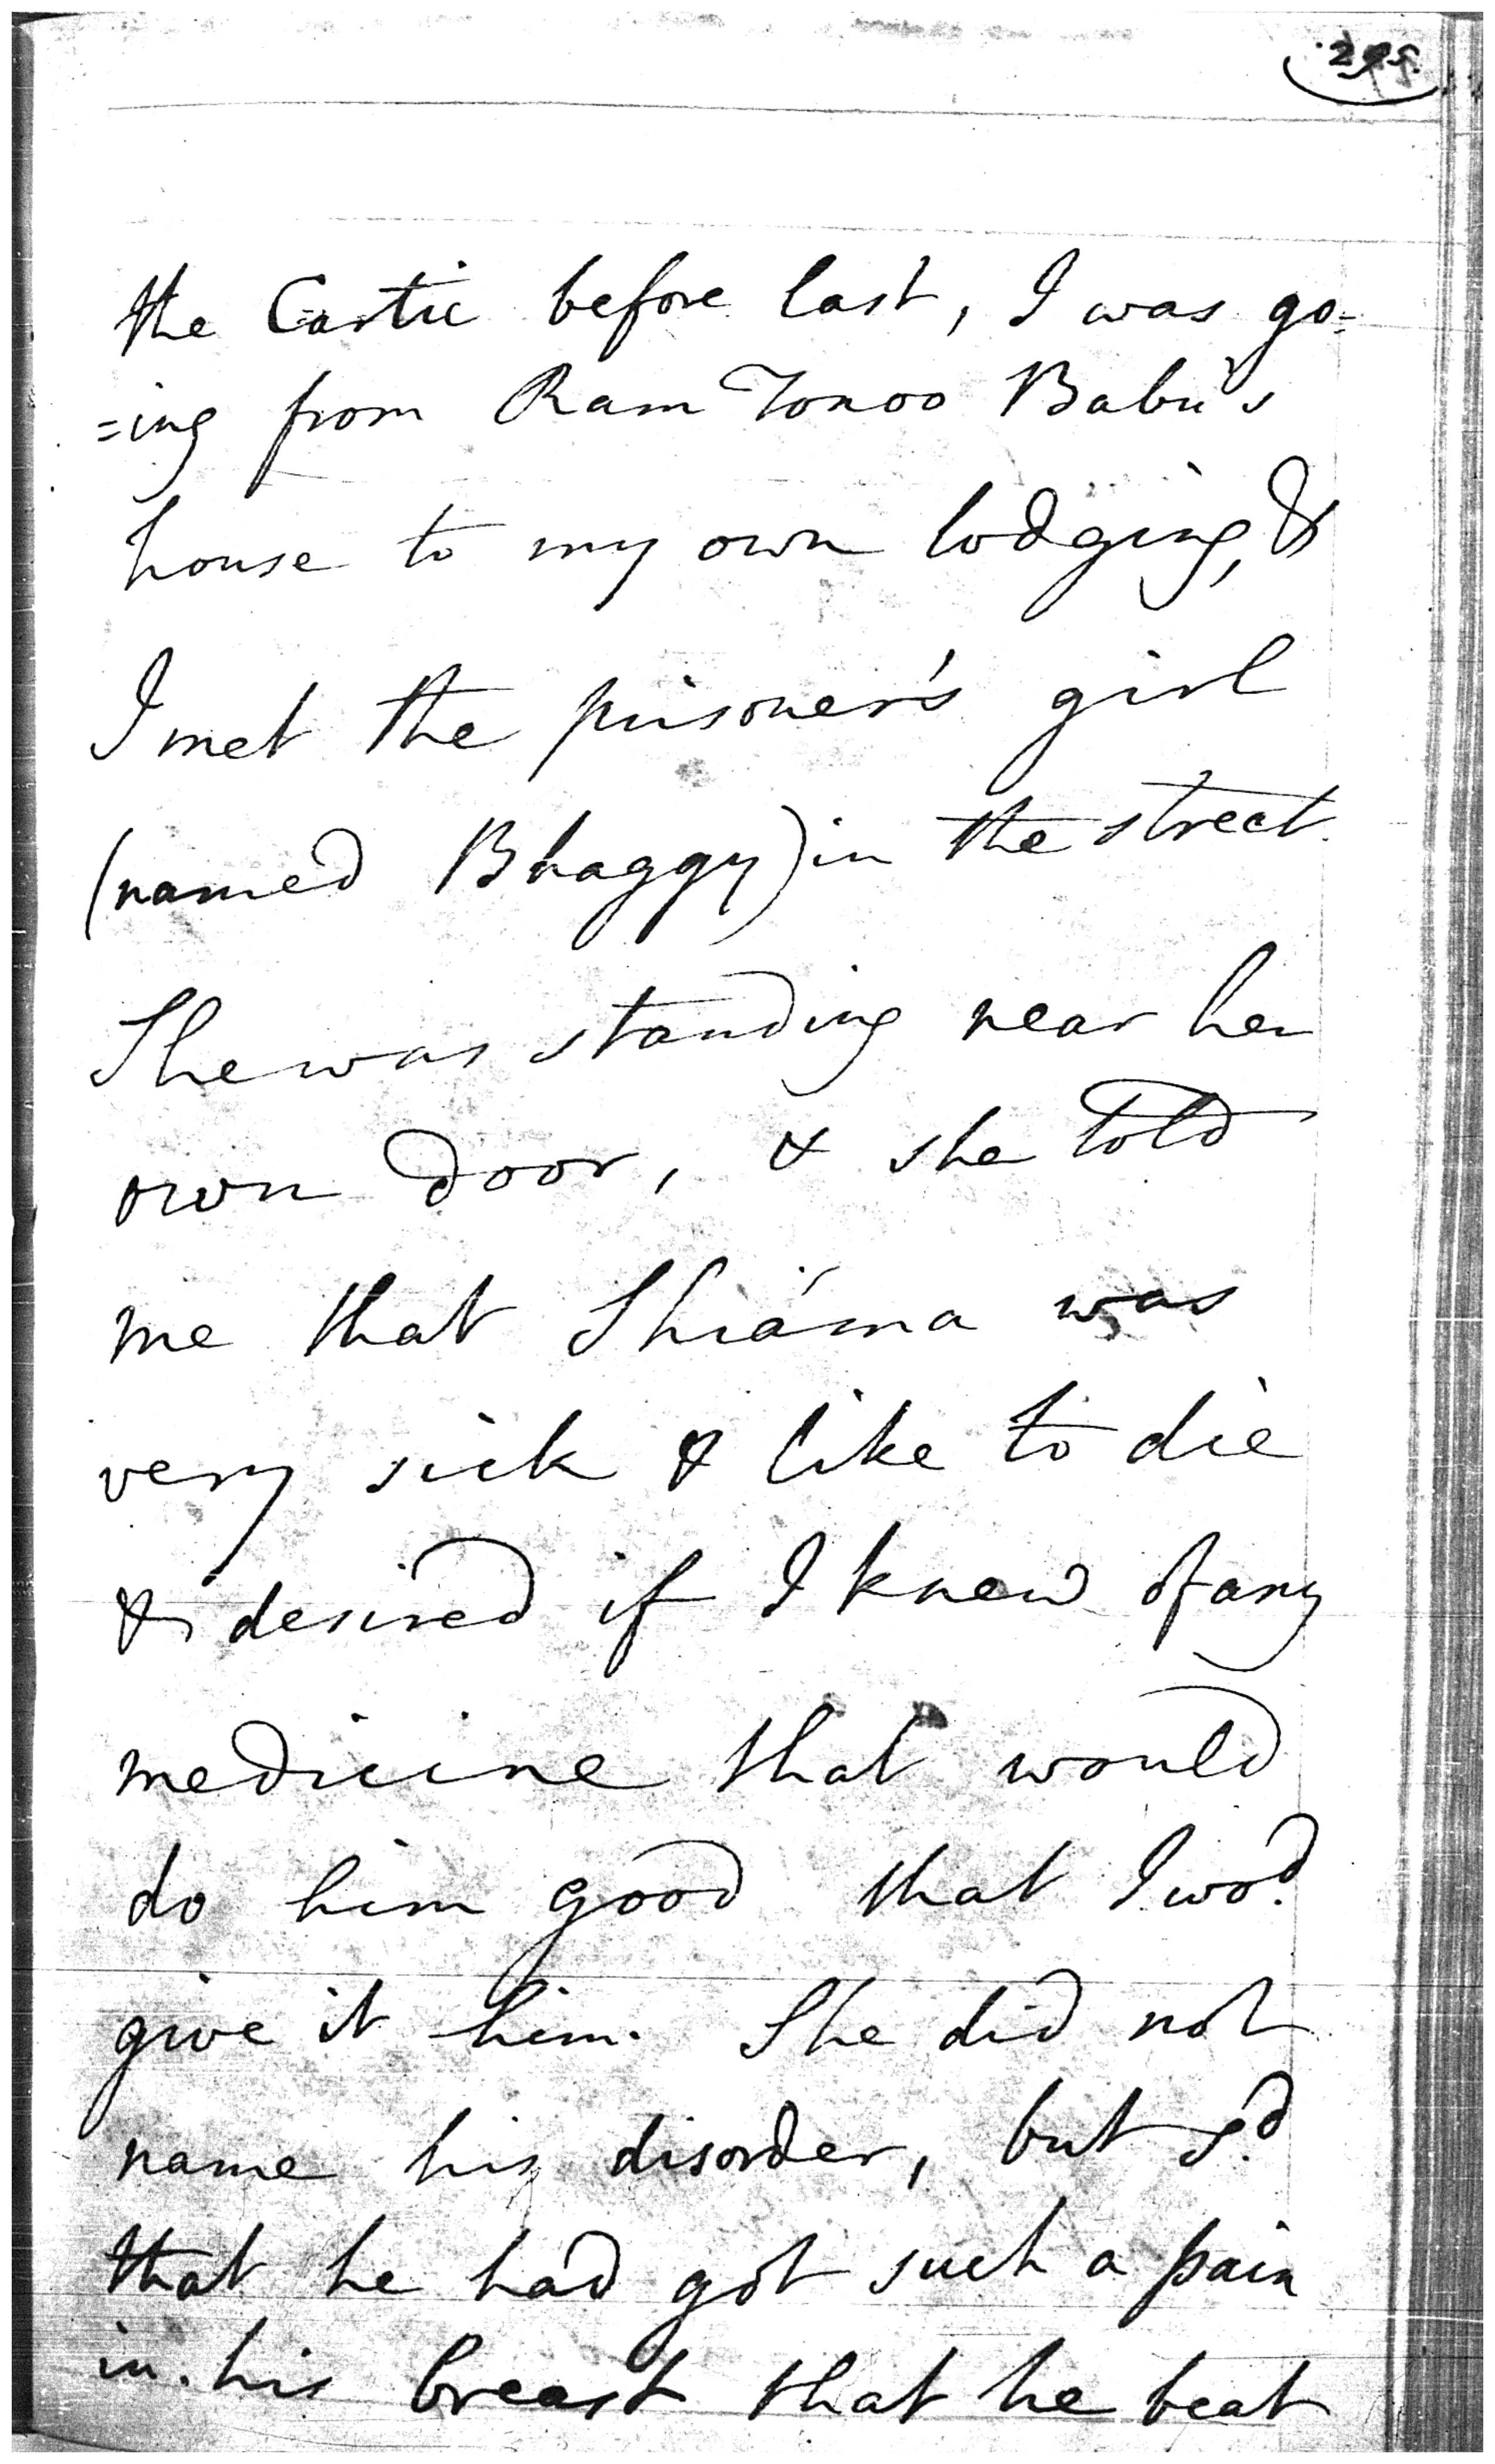 the Cartic before last, I was go=
=ing from Ram Tonoo Babu's
house to my own lodging, &
I met the prisoner's girl
(named Bhaggy) in the street.
She was standing near her
own door, & she told
me that Shiáma was
very sick & like to die
& desired if I knew of any
medicine that would
do him good that I wod.
give it him. She did not
name his disorder, but sd.
that he had got such a pain
in his breast that he beat